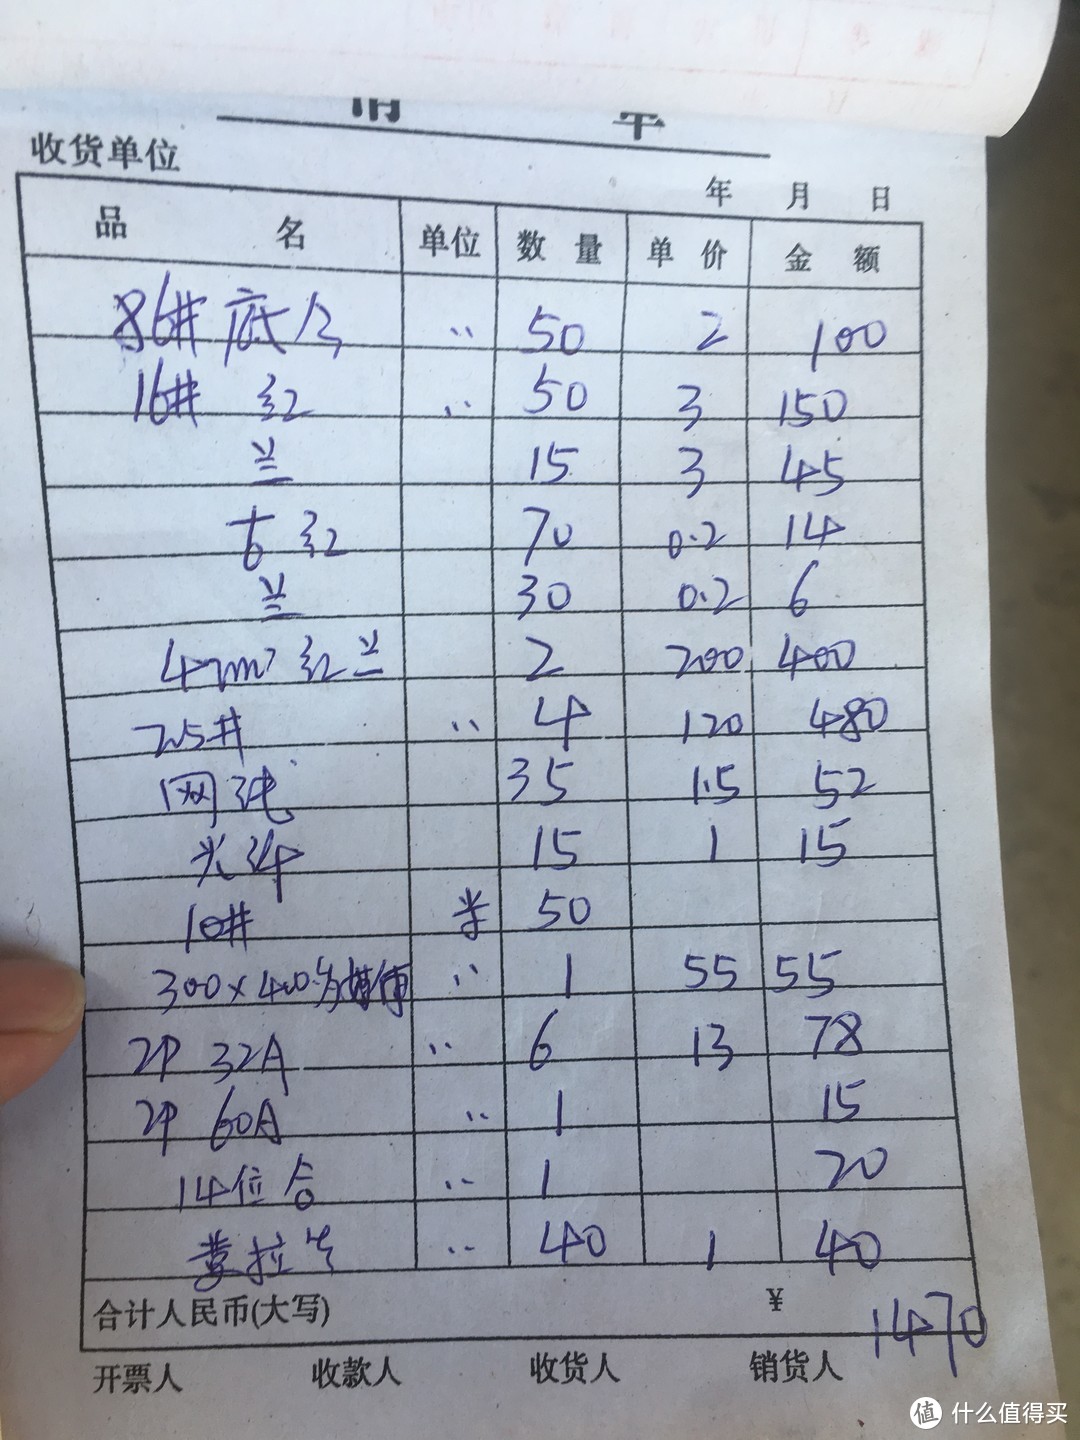 收货单位
年 月 日
品 名 单位 数 量 单 价 金 额
86# 底合 〃 50 2 100
16# 红 〃 50 3 150
兰 15 3 45
红 70 0.2 14
兰 30 0.2 6
4m² 红兰 2 200 400
25# 〃 4 120 480
网线 35 1.5 52
光纤 15 1 15
10# 米 50
300×400 〃 1 55 55
2P 32A 〃 6 13 78
2P 60A 〃 1 15
14位合 〃 1 20
〃 40 1 40
合计人民币(大写) ¥ 1470
开票人 收款人 收货人 销货人
值 什么值得买